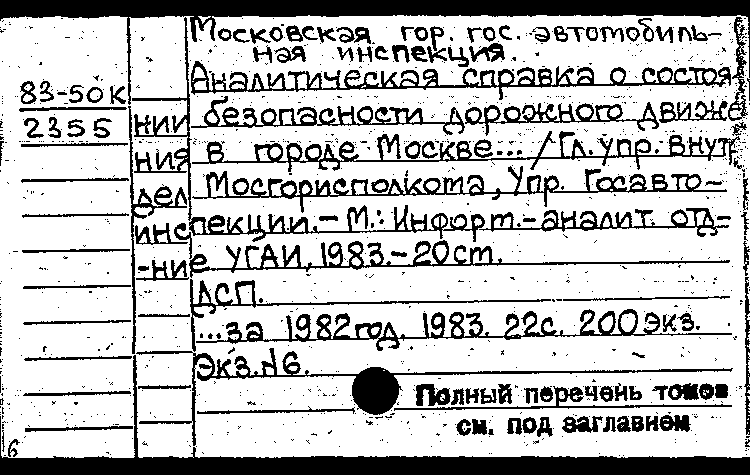 Московская гор. гос. автомобиль-
ная инспекция.
83-50К
2355
Аналитическая справка о состоя-
нии безопасности дорожного движе-
ния в городе Москве... / Гл. упр. внутр
дел Мосгорисполкома, Упр. Госавто-
инспекции. - М.: Информ.-аналит. отд-
-ние УГАИ, 1983. - 20 cm.
ДСП.
...за 1982 год. 1983. 22с. 200 экз.
Экз. №6.
Полный перечень томов
см. под заглавием
6